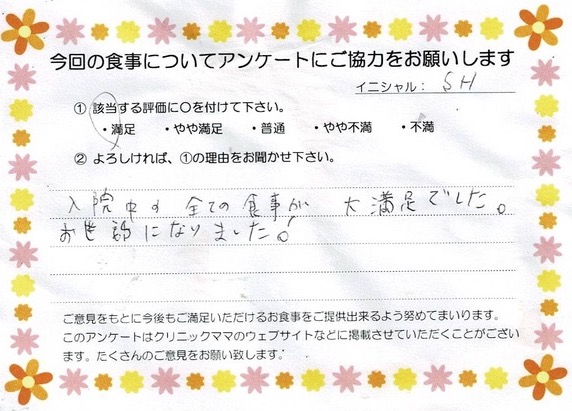 今回の食事についてアンケートにご協力をお願いします
イニシャル： SH
① 該当する評価に○を付けて下さい。
・満足 ・やや満足 ・普通 ・やや不満 ・不満
② よろしければ、①の理由をお聞かせ下さい。
入院中の 全ての食事が 大満足でした。
お世話になりました！
ご意見をもとに今後もご満足いただけるお食事をご提供出来るよう努めてまいります。
このアンケートはクリニックママのウェブサイトなどに掲載させていただくことがござい
ます。たくさんのご意見をお願い致します。